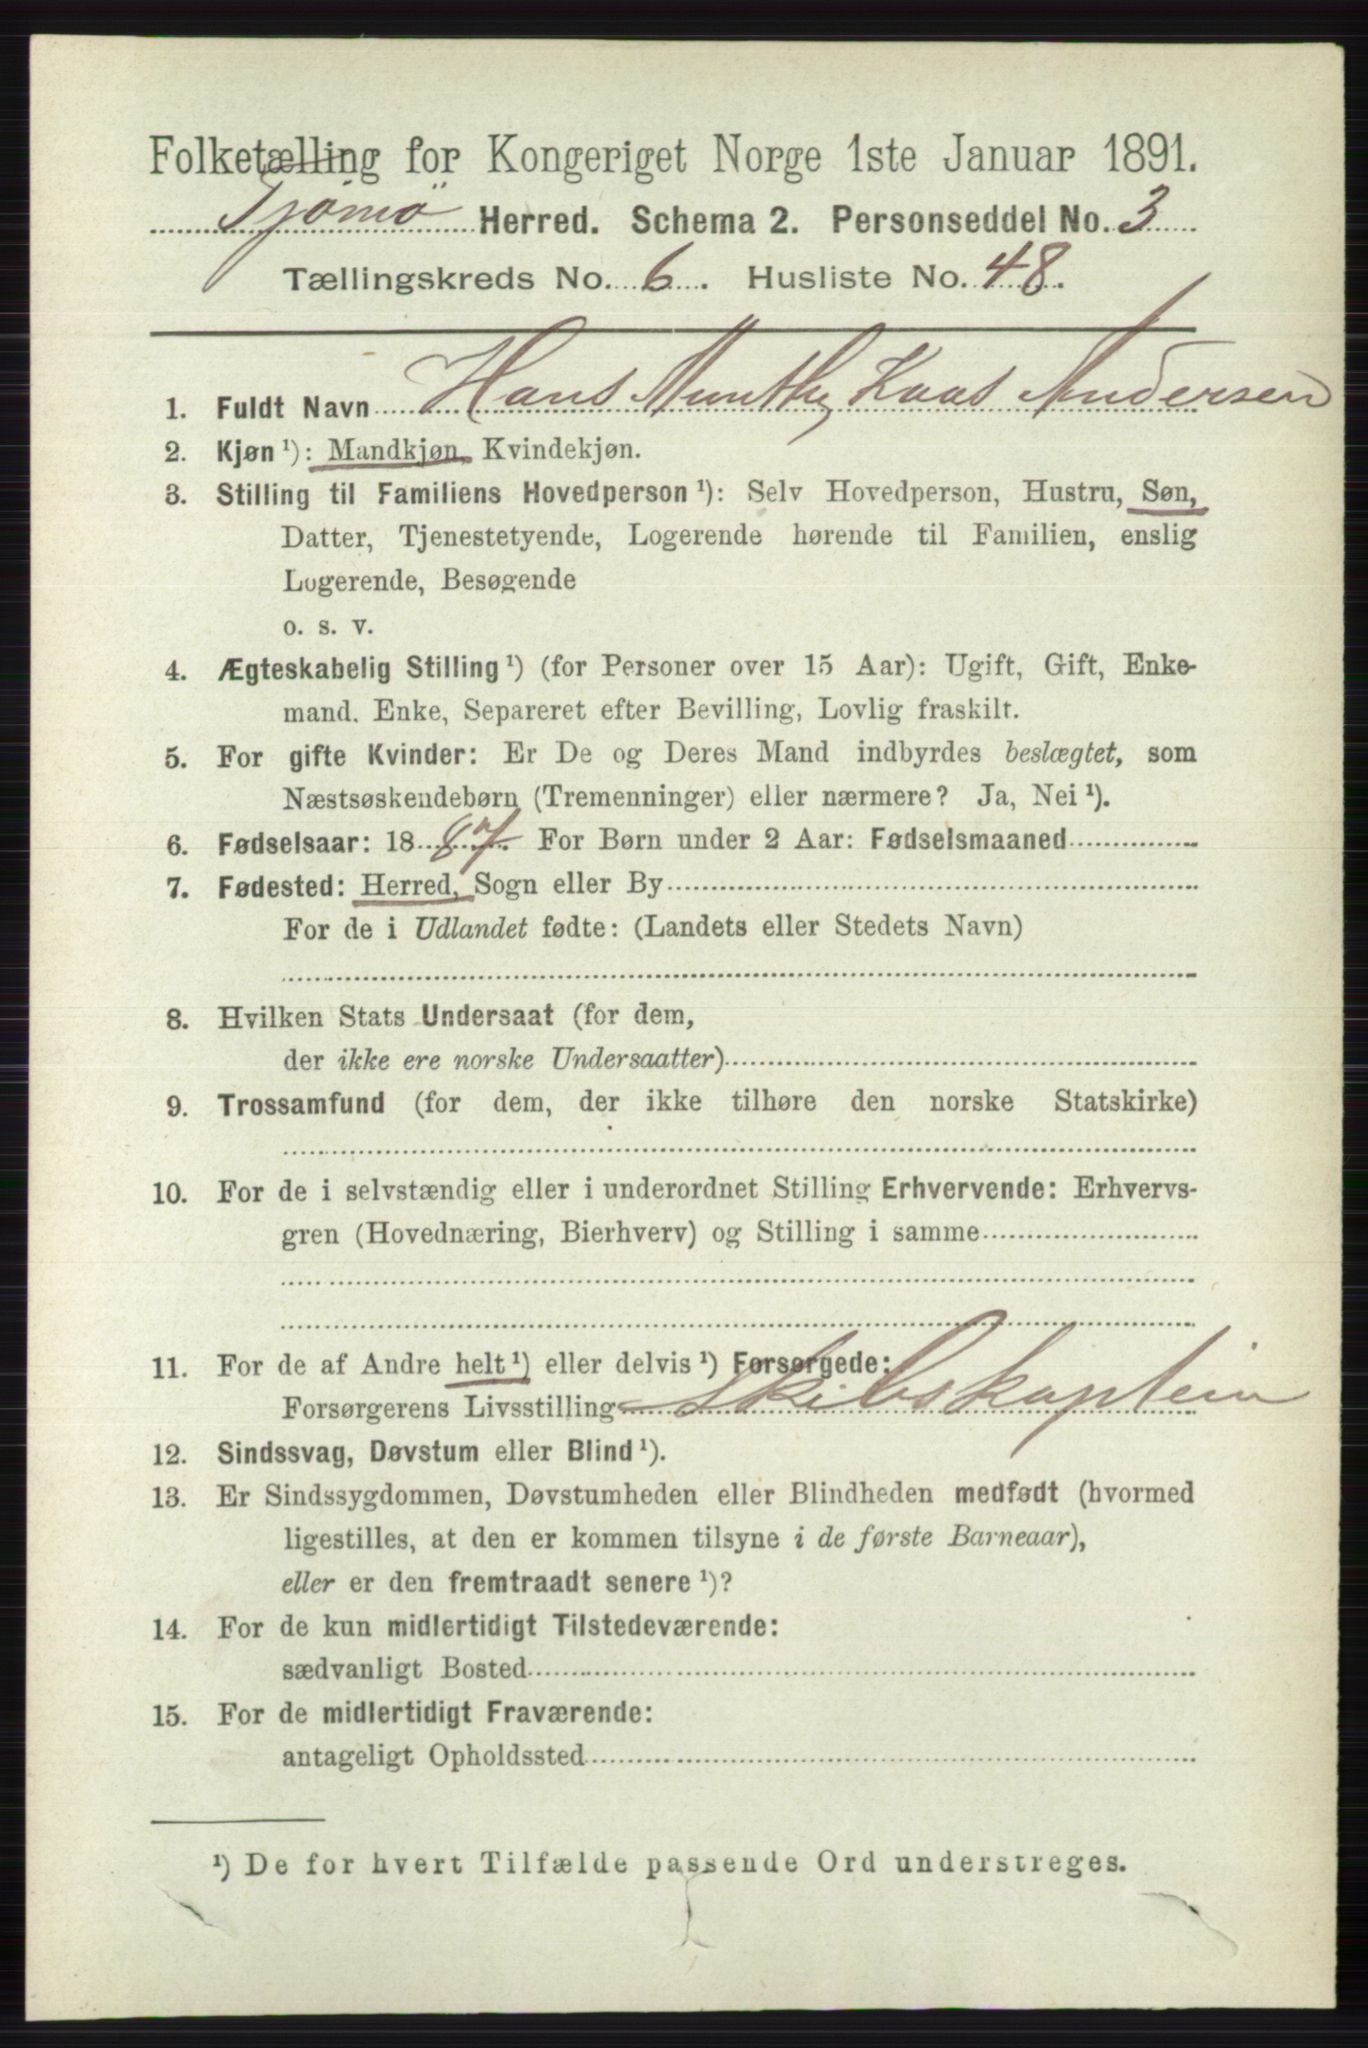 Folketælling for Kongeriget Norge 1ste Januar 1891.
Tjømø Herred. Schema 2. Personseddel No. 3
Tællingskreds No. 6. Husliste No. 48.
1. Fuldt Navn Hans Munthe Kaas Andersen
2. Kjøn ¹): Mandkjøn, Kvindekjøn.
3. Stilling til Familiens Hovedperson ¹): Selv Hovedperson, Hustru, Søn,
Datter, Tjenestetyende, Logerende hørende til Familien, enslig
Logerende, Besøgende
o. s. v.
4. Ægteskabelig Stilling ¹) (for Personer over 15 Aar): Ugift, Gift, Enke-
mand, Enke, Separeret efter Bevilling, Lovlig fraskilt.
5. For gifte Kvinder: Er De og Deres Mand indbyrdes beslægtet, som
Næstsøskendebørn (Tremenninger) eller nærmere? Ja, Nei ¹).
6. Fødselsaar: 1887. For Børn under 2 Aar: Fødselsmaaned
7. Fødested: Herred, Sogn eller By
For de i Udlandet fødte: (Landets eller Stedets Navn)
8. Hvilken Stats Undersaat (for dem,
der ikke ere norske Undersaatter)
9. Trossamfund (for dem, der ikke tilhøre den norske Statskirke)
10. For de i selvstændig eller i underordnet Stilling Erhvervende: Erhvervs-
gren (Hovednæring, Bierhverv) og Stilling i samme
11. For de af Andre helt ¹) eller delvis ¹) Forsørgede:
Forsørgerens Livsstilling Skibskaptein
12. Sindssvag, Døvstum eller Blind ¹).
13. Er Sindssygdommen, Døvstumheden eller Blindheden medfødt (hvormed
ligestilles, at den er kommen tilsyne i de første Barneaar),
eller er den fremtraadt senere ¹)?
14. For de kun midlertidigt Tilstedeværende:
sædvanligt Bosted
15. For de midlertidigt Fraværende:
antageligt Opholdssted
¹) De for hvert Tilfælde passende Ord understreges.